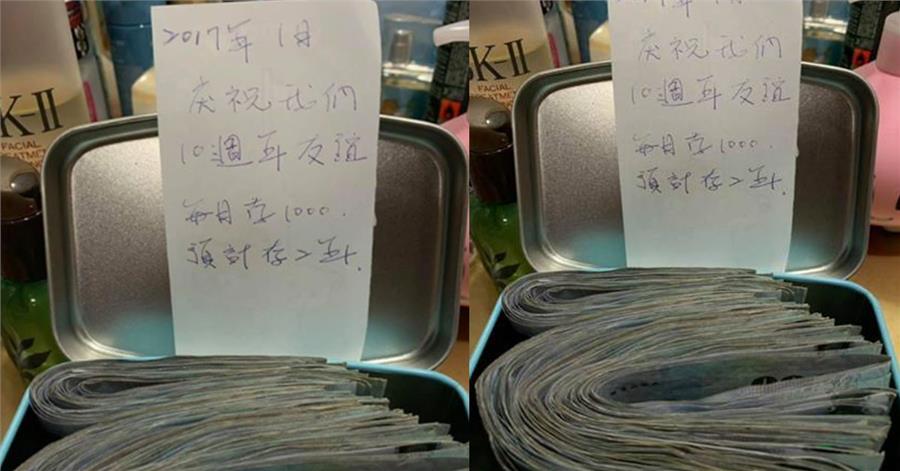 K-II
FACIAL
2017年1月
庆祝我們
10週年友誼
每月存1000.
預計存2年.
SK-II
FACIAL
庆祝我們
10週年友誼
每月存1000.
預計存2年.